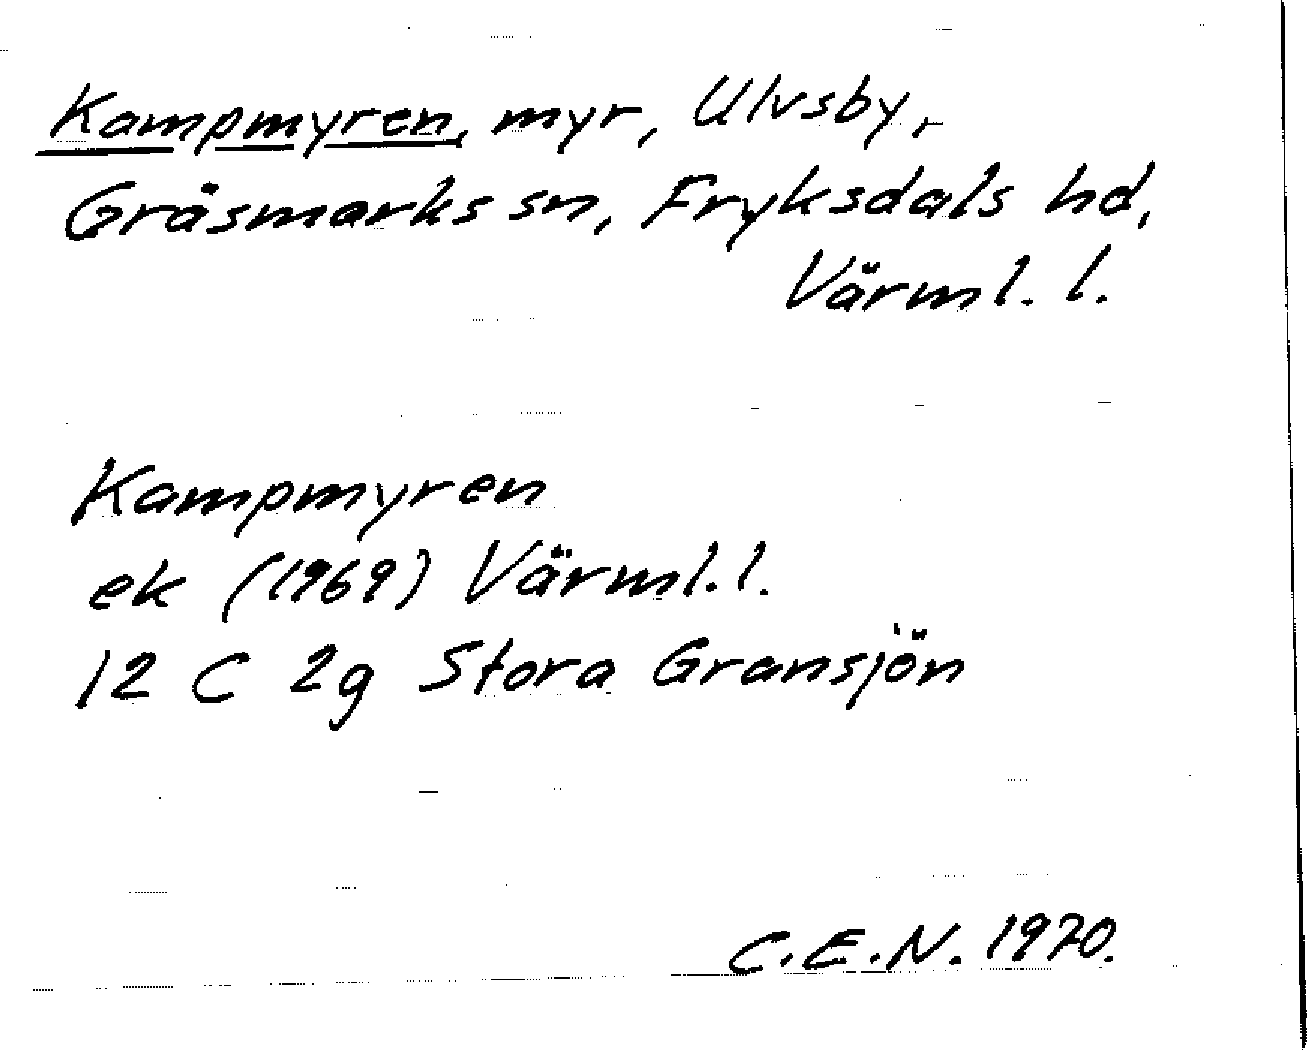 Kampmyren, myr, Ulvsby,
Gräsmarks sn, Fryksdals hd,
Värml. l.
Kampmyren
ek (1969) Värml. l.
12 C 2g Stora Gransjön
C.E.N. 1970.